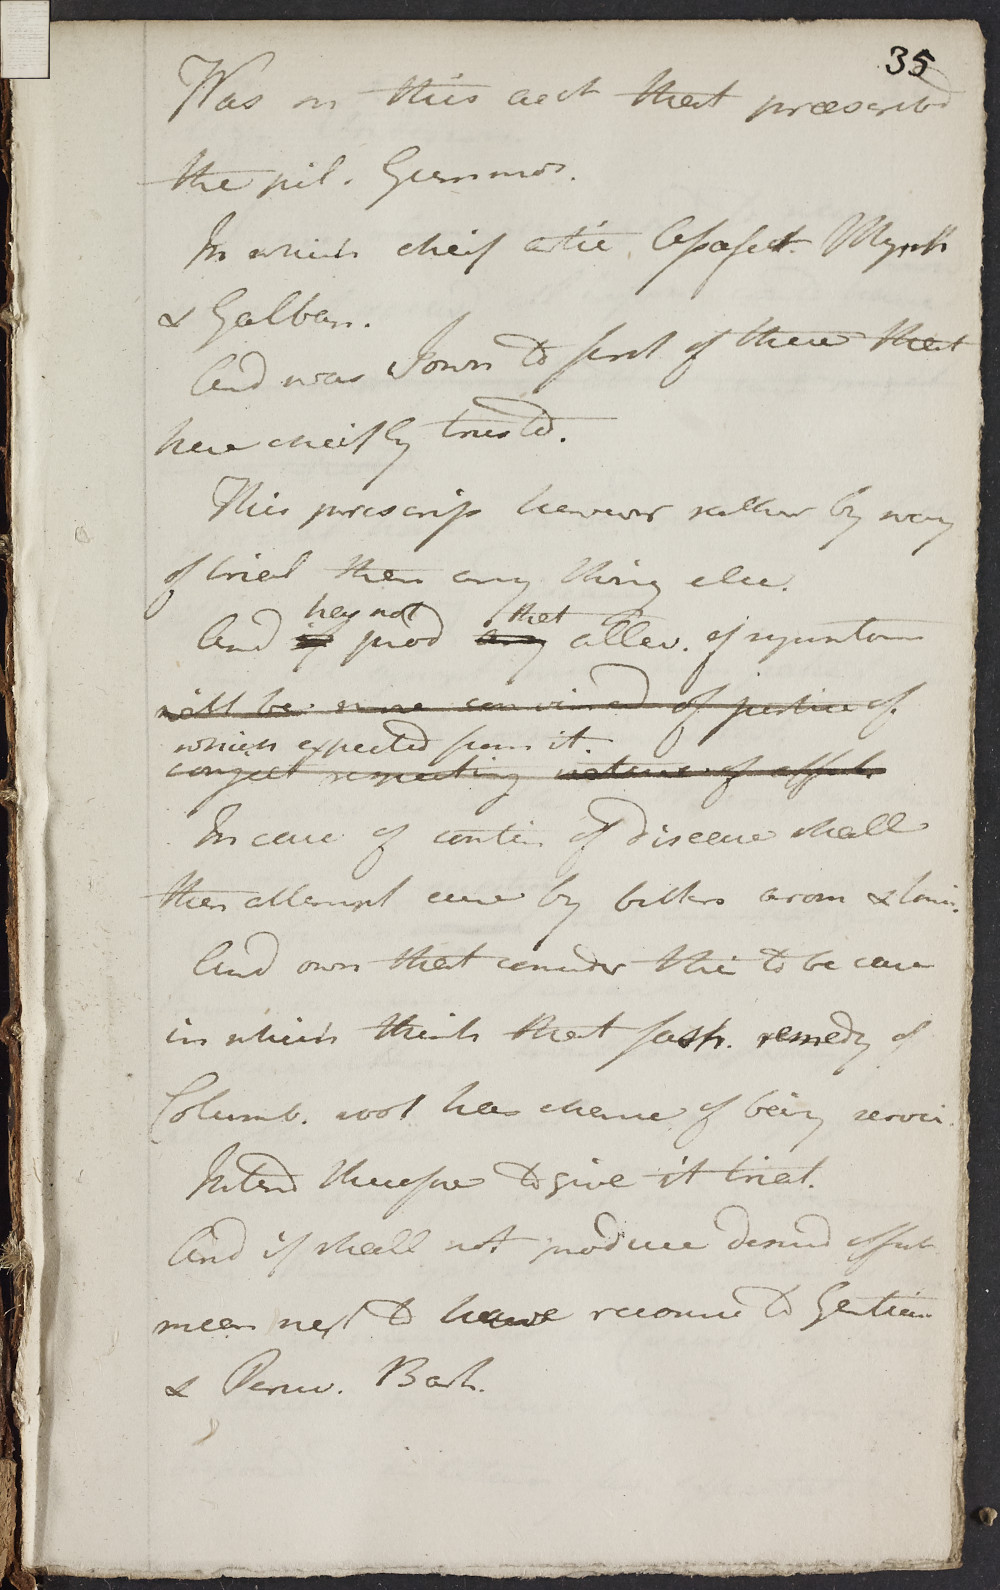 35
Was on this acct that præscribd
the pil. Gummos.
In which cheif active Assafœt. Myrrh
& Galban.
And was I own to first of these that
here cheifly trusted.
This prescrip however rather by way
of trial then any thing else.
has not that
And if prod any allev. of symptoms
will be more convinced of justice of
which expected from it.
conject respecting nature of affect.
In case of contin. of disease shall
then attempt cure by bitters arom & tonic.
And own that consider this to be case
in which think that fash. remedy of
Columb. root has chance of being servic.
Intend therefore to give it trial.
And if shall not produce desired effect
mean next to have recourse to Gentian
& Peruv. Bark.